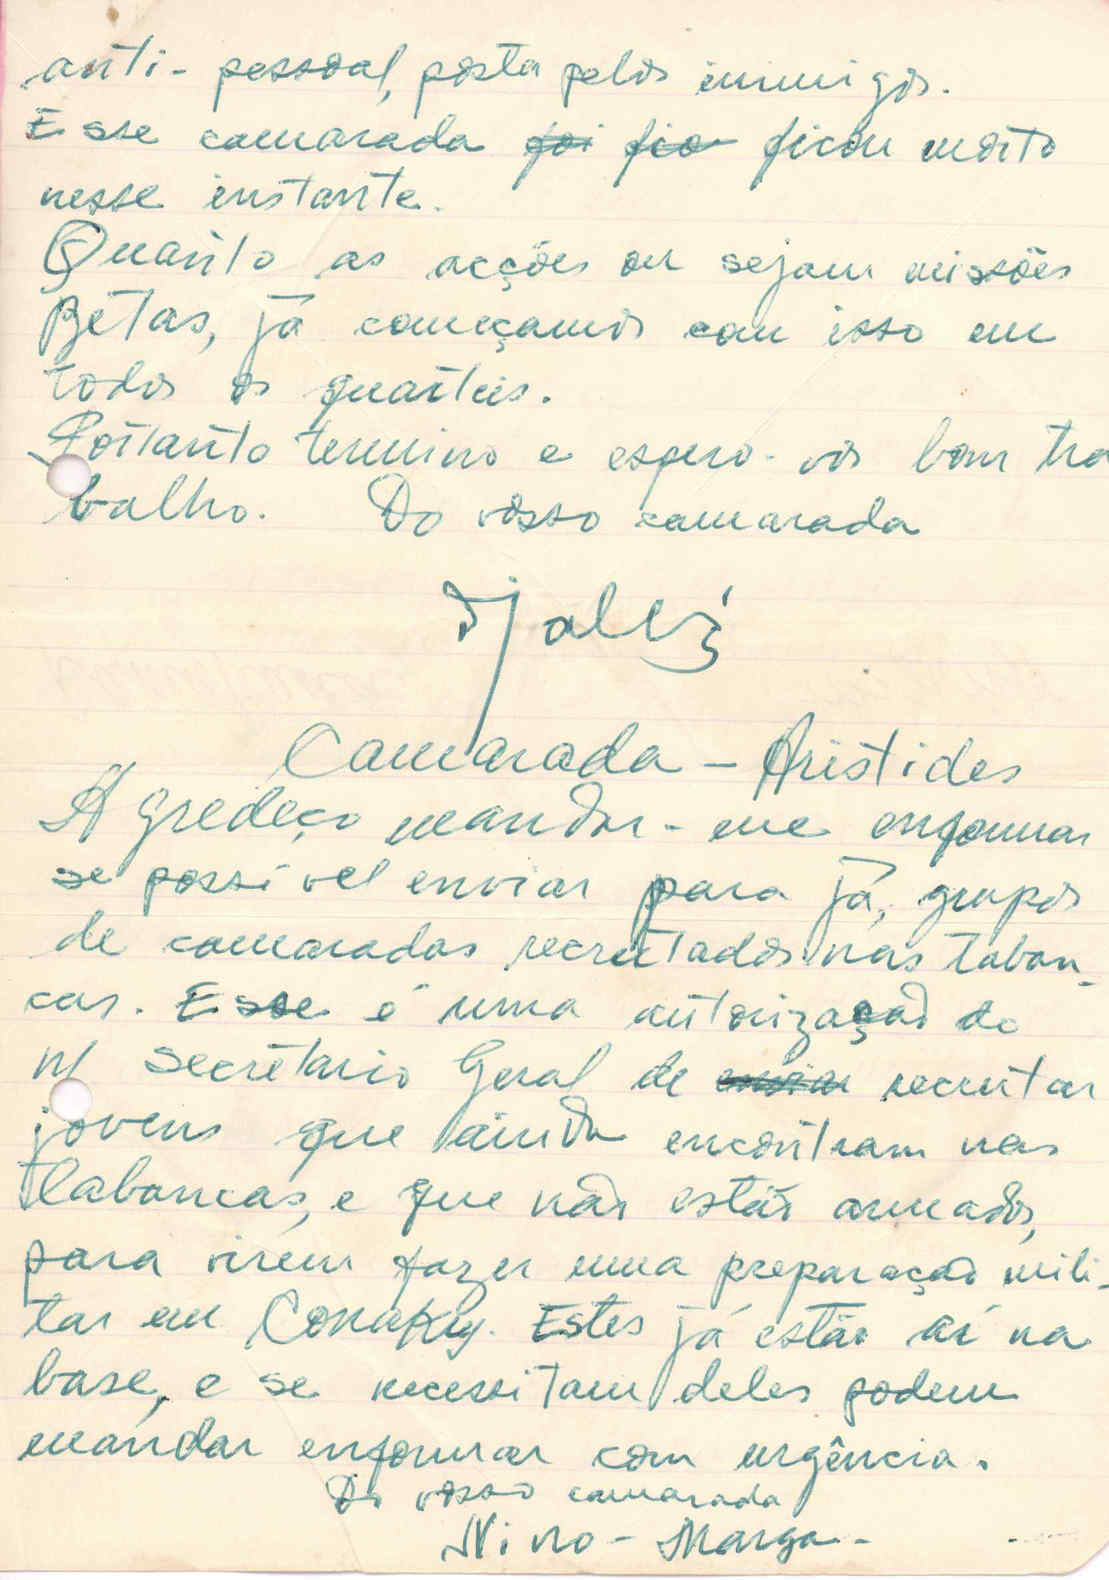 anti-pessoal, posta pelos inimigos.
Esse camarada foi fio ficou morto
nesse instante.
Quanto as acções ou sejam missões
Betas, já começamos com isso em
todos os quarteis.
Portanto termino e espero-vos bom tra
balho. Do vosso camarada
Djaló
Camarada - Aristides
Agredeço mandar-me enformar
se possível enviar para já, grupos
de camaradas recrutados nas taban-
cas. Esse é uma autorização do
n/ Secretário Geral de enviar recrutar
jovens que ainda encontram nas
tabancas, e que não estão armados,
para virem fazer uma preparação mili-
tar em Conakry. Estes já estão aí na
base, e se necessitam deles podem
mandar enformar com urgência.
Do vosso camarada
Nino - Marga -